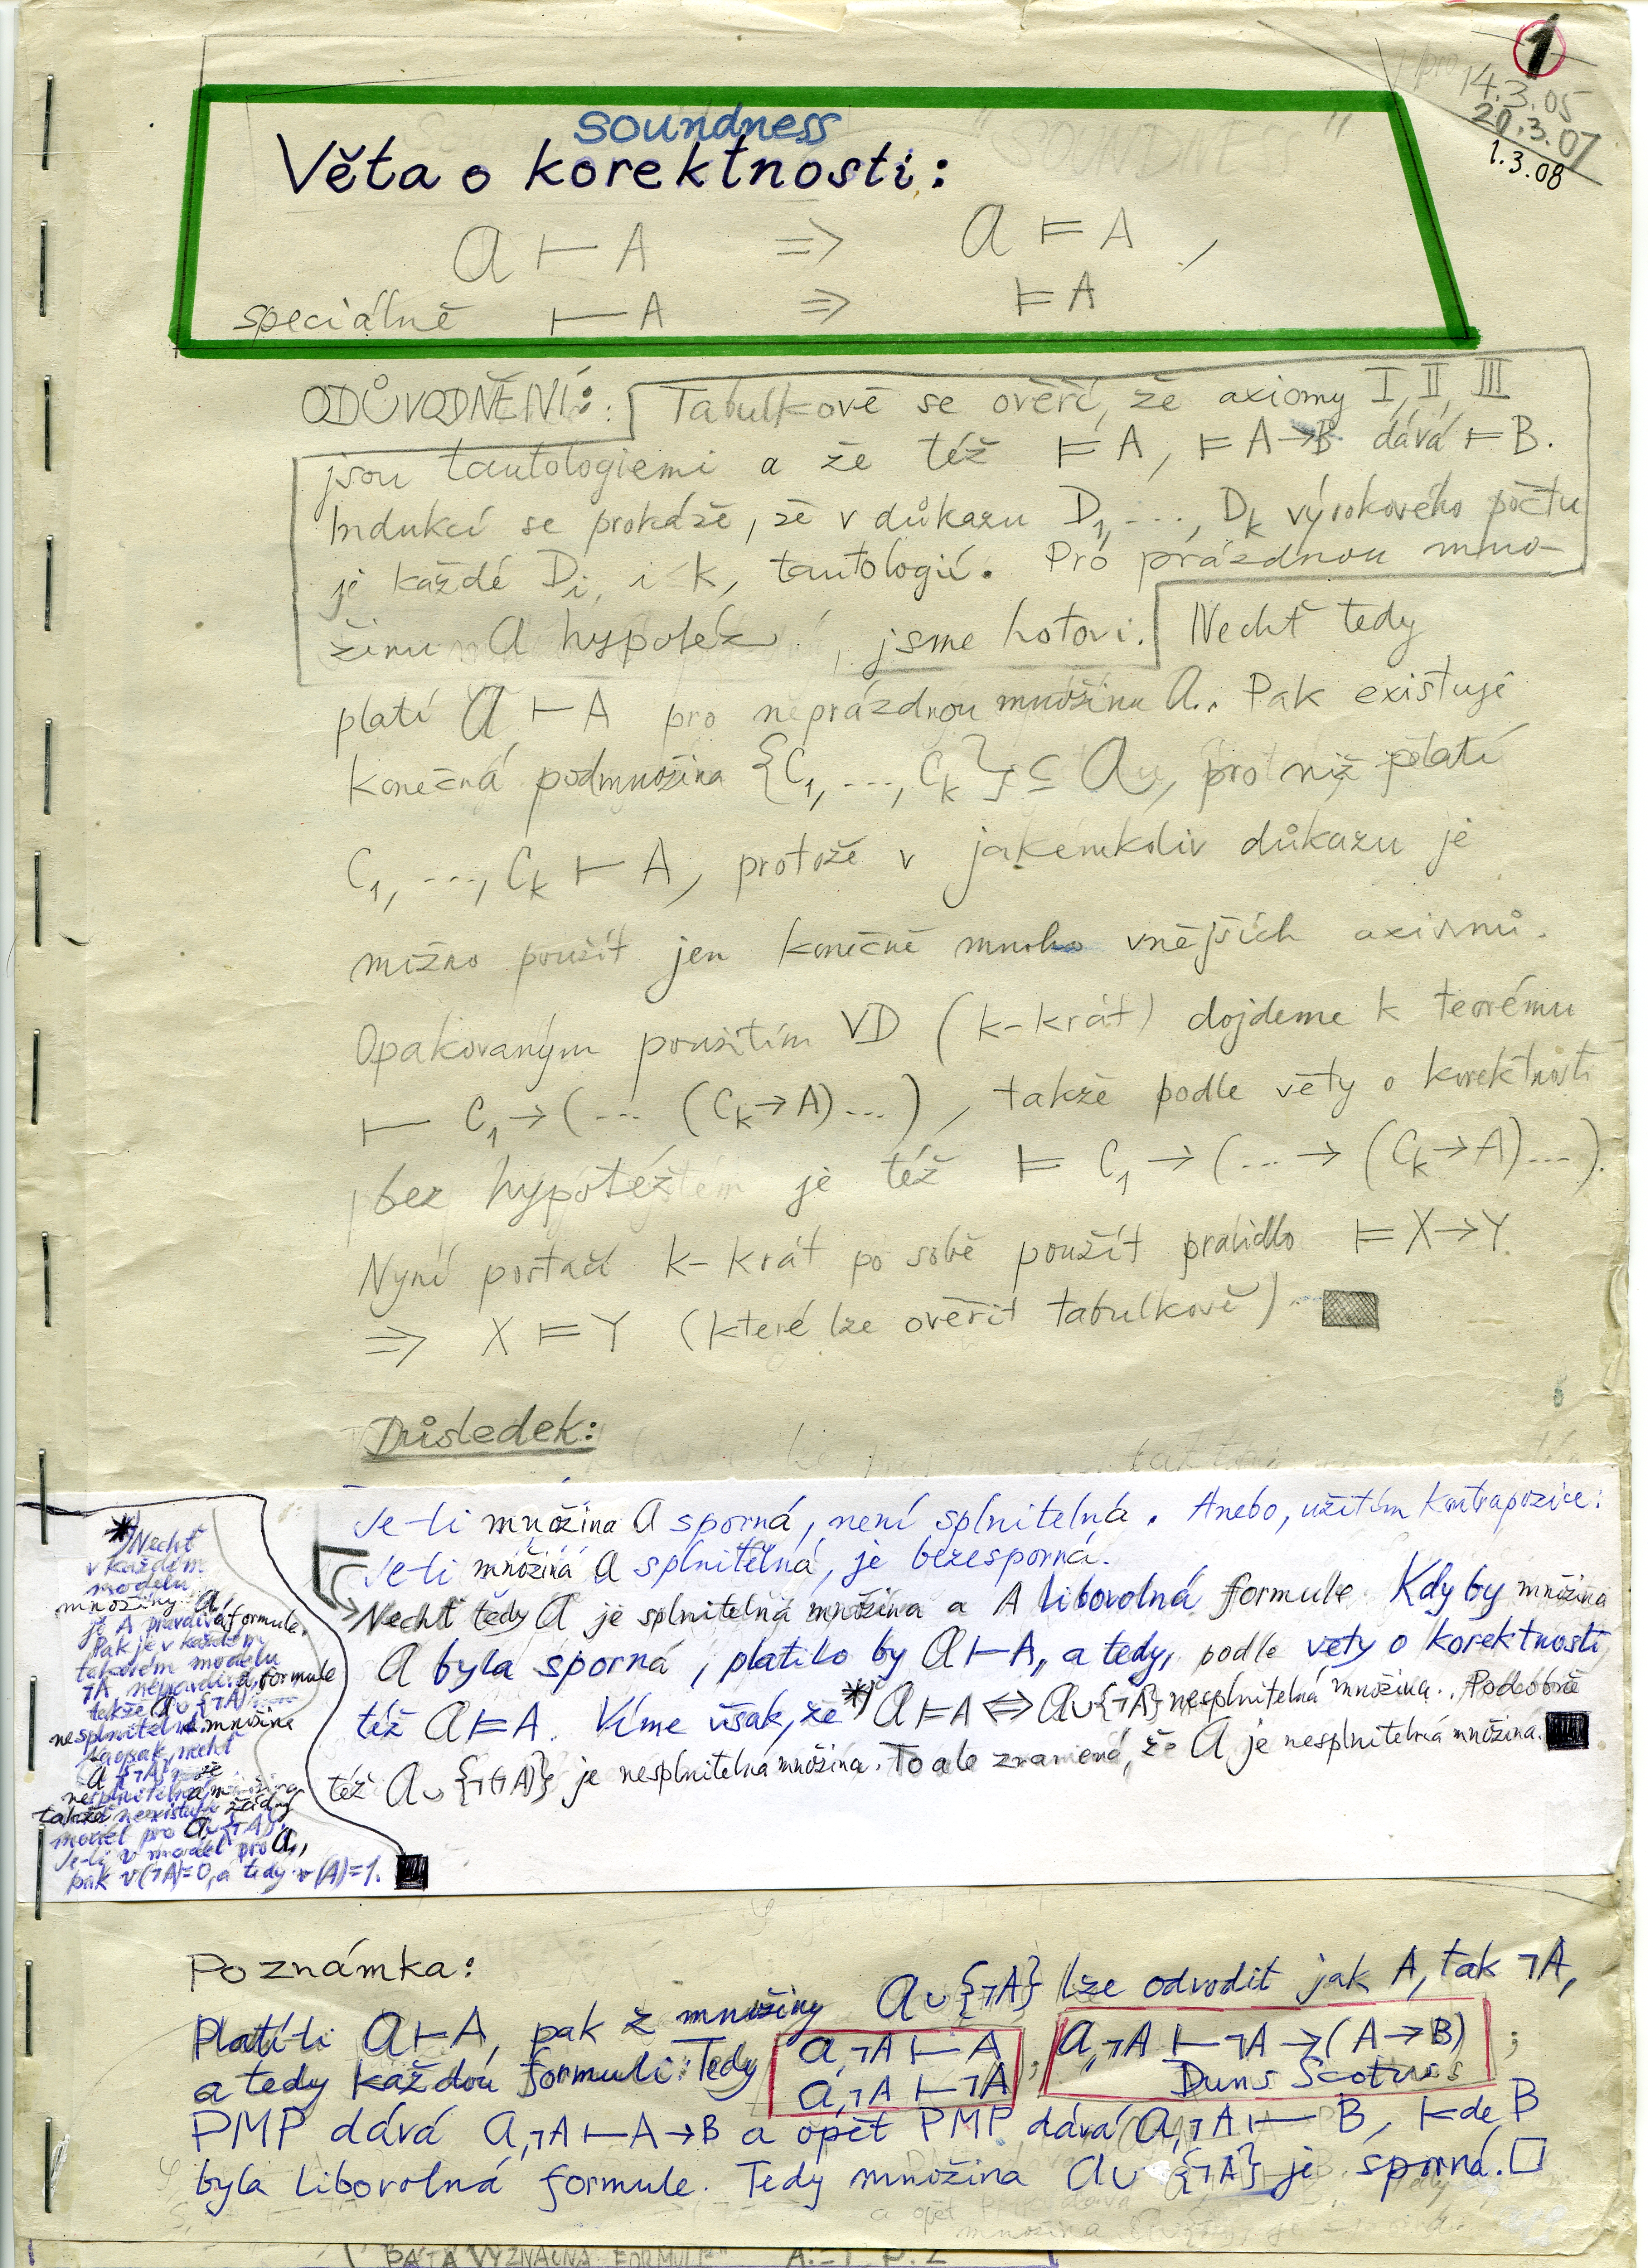 1
14.3.05
20.3.07
1.3.08
soundness
Věta o korektnosti:
𝒜 ⊢ A ⇒ 𝒜 ⊨ A,
speciálně ⊢ A ⇒ ⊨ A
ODŮVODNĚNÍ: Tabulkově se ověří, že axiomy I, II, III
jsou tautologiemi a že též ⊨ A, ⊨ A→B dává ⊨ B.
Indukcí se prokáže, že v důkazu D₁, ..., Dₖ výrokového počtu
je každé Dᵢ, i ≤ k, tautologií. Pro prázdnou mno-
žinu 𝒜 hypotéz, jsme hotovi. Nechť tedy
platí 𝒜 ⊢ A pro neprázdnou množinu 𝒜. Pak existuje
konečná podmnožina {C₁, ..., Cₖ} ⊆ 𝒜, pro niž platí
C₁, ..., Cₖ ⊢ A, protože v jakémkoliv důkazu je
možno použít jen konečně mnoho vnějších axiomů.
Opakovaným použitím VD (k-krát) dojdeme k teorému
⊢ C₁→(... (Cₖ→A)...), takže podle věty o korektnosti
bez hypotéz je též ⊨ C₁→(...→(Cₖ→A)...).
Nyní postačí k-krát po sobě použít pravidlo ⊨ X→Y
⇒ X ⊨ Y (které lze ověřit tabulkově)
Důsledek:
Je-li množina 𝒜 sporná, není splnitelná. Anebo, užitím kontrapozice:
Je-li množina 𝒜 splnitelná, je bezesporná.
Nechť tedy 𝒜 je splnitelná množina a A libovolná formule. Kdyby množina
𝒜 byla sporná, platilo by 𝒜⊢A, a tedy, podle věty o korektnosti
též 𝒜⊨A. Víme však, že *) 𝒜⊨A ⇔ 𝒜∪{¬A} nesplnitelná množina. Podobně
též 𝒜∪{¬(¬A)} je nesplnitelná množina. To ale znamená, že 𝒜 je nesplnitelná množina.
*) Nechť
v každém
modelu
množiny 𝒜
je A pravdivá formule.
Pak je v každém
takovém modelu
¬A nepravdivá formule
takže 𝒜∪{¬A}
nesplnitelná množina
Naopak, nechť
𝒜∪{¬A} je
nesplnitelná množina
takže neexistuje žádný
model pro 𝒜∪{¬A}.
Je-li v model pro 𝒜,
pak v(¬A)=0, a tedy v(A)=1.
Poznámka:
Platí-li 𝒜⊢A, pak z množiny 𝒜∪{¬A} lze odvodit jak A, tak ¬A,
a tedy každou formuli. Tedy 𝒜,¬A ⊢ A ; 𝒜,¬A ⊢ ¬A→(A→B) ;
𝒜,¬A ⊢ ¬A Duns Scotus
PMP dává 𝒜,¬A ⊢ A→B a opět PMP dává 𝒜,¬A ⊢ B, kde B
byla libovolná formule. Tedy množina 𝒜∪{¬A} je sporná. □